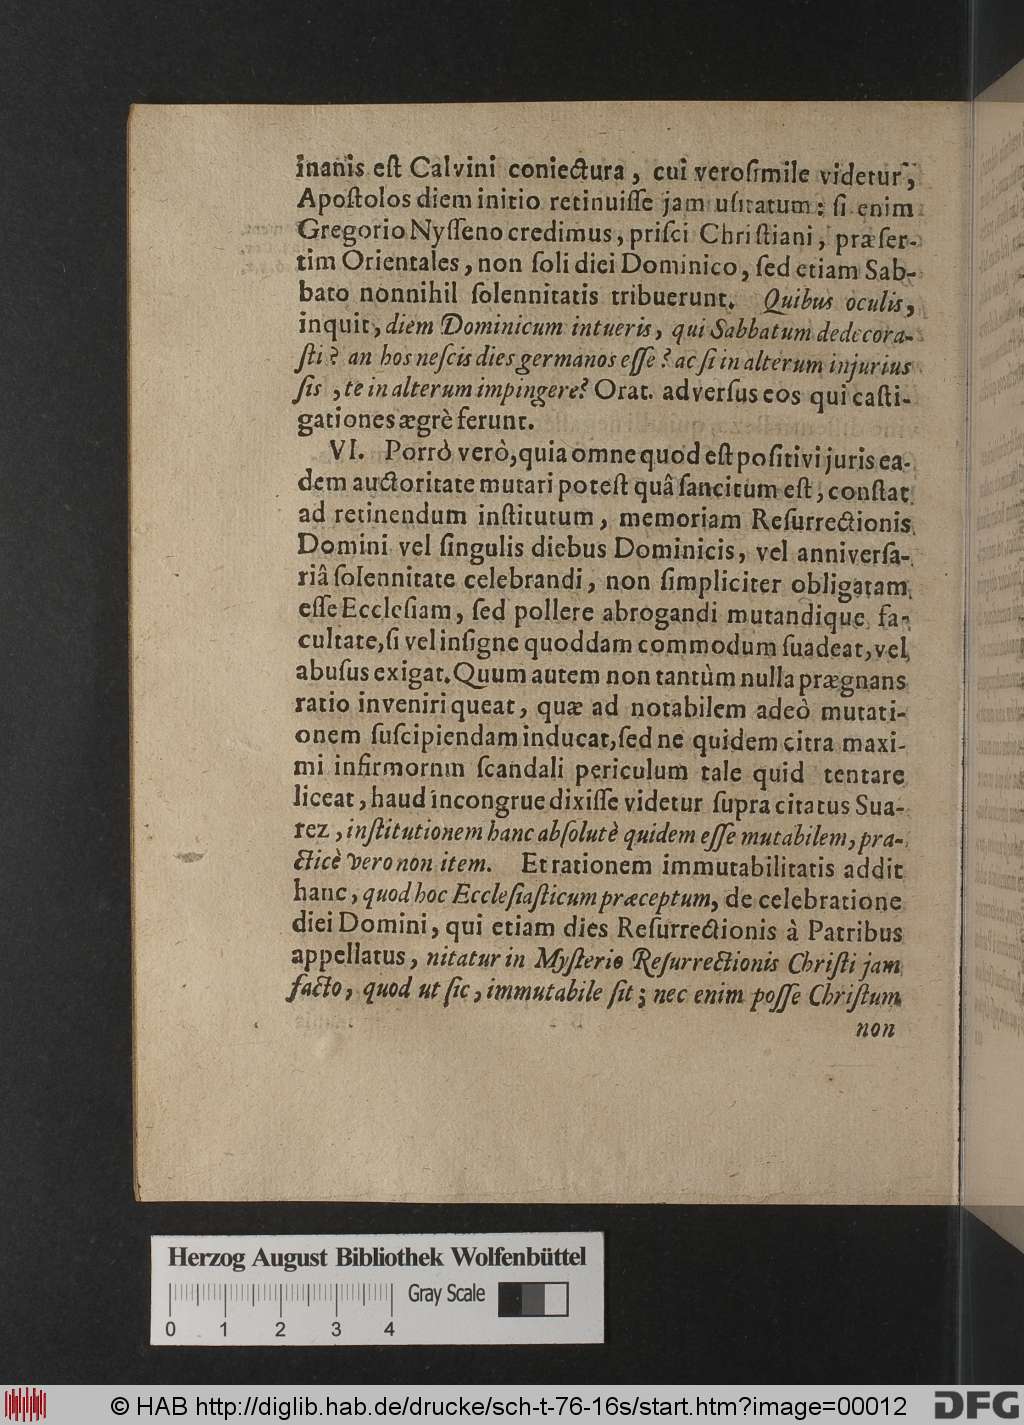 inanis eſt Calvini coniectura, cui veroſimile videtur,
Apoſtolos diem initio retinuiſſe jam uſitatum: ſi enim
Gregorio Nyſſeno credimus, priſci Chriſtiani, præſer-
tim Orientales, non ſoli diei Dominico, ſed etiam Sab-
bato nonnihil ſolennitatis tribuerunt. Quibus oculis,
inquit, diem Dominicum intueris, qui Sabbatum dedecora-
ſti? an hos neſcis dies germanos eſſe? ac ſi in alterum injurius
ſis, te in alterum impingere? Orat. adverſus eos qui caſti-
gationes ægrè ferunt.
VI. Porrò verò, quia omne quod eſt poſitivi juris ea-
dem auctoritate mutari poteſt quâ ſancitum eſt, conſtat
ad retinendum inſtitutum, memoriam Reſurrectionis
Domini vel ſingulis diebus Dominicis, vel anniverſa-
riâ ſolennitate celebrandi, non ſimpliciter obligatam
eſſe Eccleſiam, ſed pollere abrogandi mutandique fa-
cultate, ſi vel inſigne quoddam commodum ſuadeat, vel
abuſus exigat. Quum autem non tantùm nulla prægnans
ratio inveniri queat, quæ ad notabilem adeò mutati-
onem ſuſcipiendam inducat, ſed ne quidem citra maxi-
mi infirmornm ſcandali periculum tale quid tentare
liceat, haud incongrue dixiſſe videtur ſupra citatus Sua-
rez, inſtitutionem hanc abſolutè quidem eſſe mutabilem, pra-
cticè vero non item. Et rationem immutabilitatis addit
hanc, quod hoc Eccleſiaſticum præceptum, de celebratione
diei Domini, qui etiam dies Reſurrectionis à Patribus
appellatus, nitatur in Myſterio Reſurrectionis Chriſti jam
facto, quod ut ſic, immutabile ſit; nec enim poſſe Chriſtum
non
Herzog August Bibliothek Wolfenbüttel
Gray Scale
0 1 2 3 4
© HAB http://diglib.hab.de/drucke/sch-t-76-16s/start.htm?image=00012
DFG